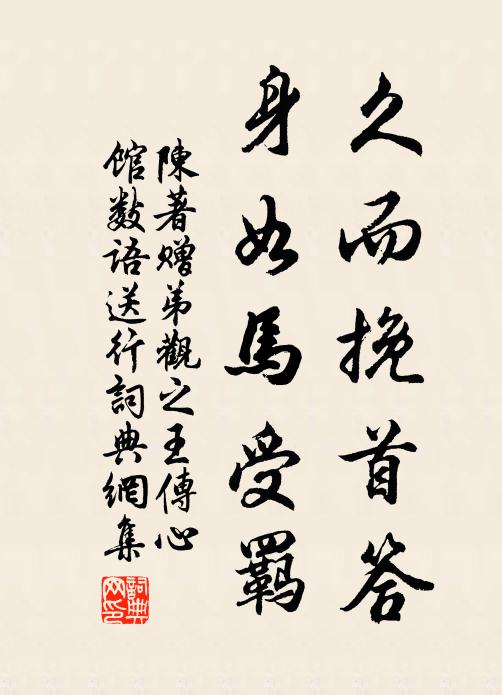 久而挽首答
身如馬受羈
陳著贈弟觀之王傳心
館数語送行詞典網集
詞典網印